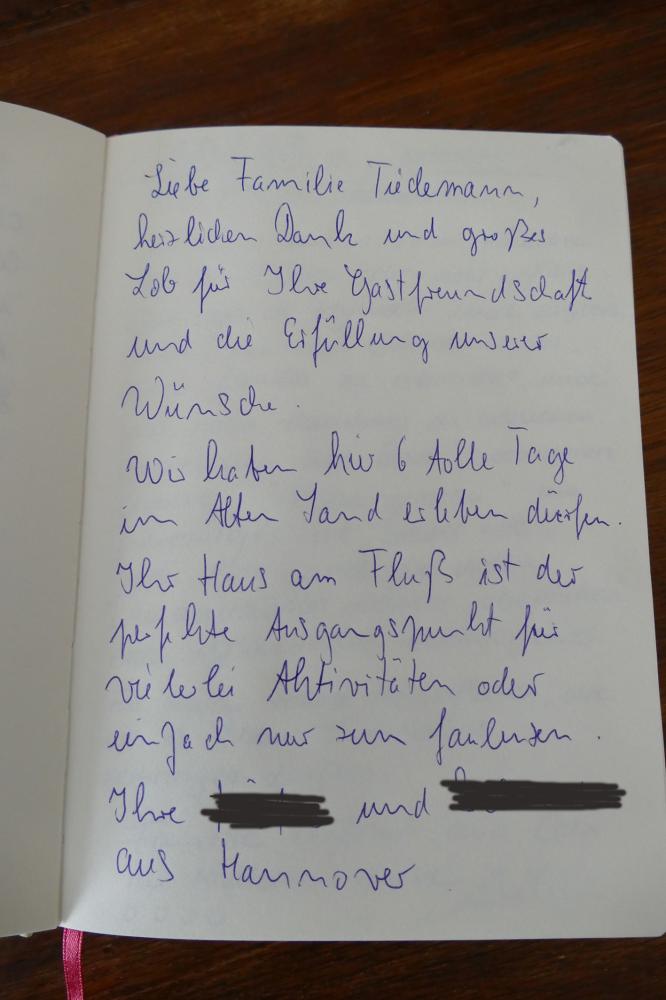 Liebe Familie Tiedemann,
herzlichen Dank und großes
Lob für Ihre Gastfreundschaft
und die Erfüllung unserer
Wünsche.
Wir haben hier 6 tolle Tage
im Alten Land erleben dürfen.
Ihr Haus am Fluß ist der
perfekte Ausgangspunkt für
vielerlei Aktivitäten oder
einfach nur zum faulenzen.
Ihre und
aus Hannover